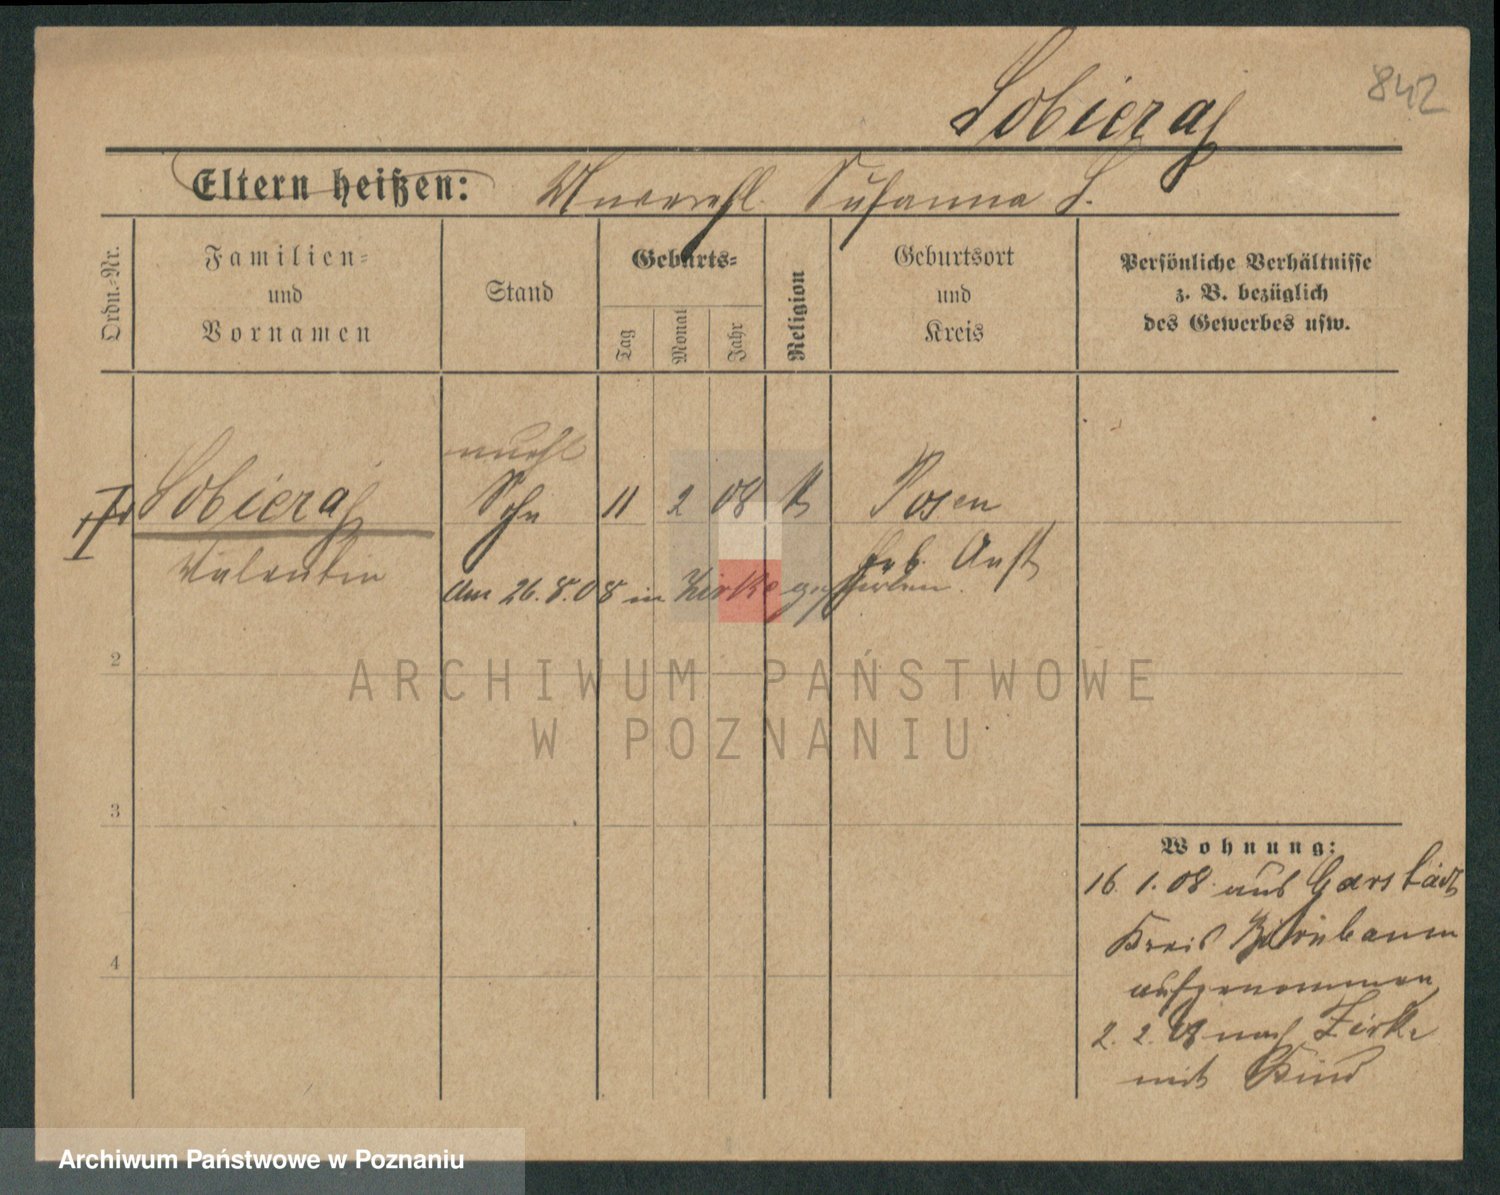 842
Sobieraj
Eltern heißen: Unverehl. Susanna S.
Ordn.-Nr.
Familien-
und
Vornamen
Stand
Geburts-
Tag
Monat
Jahr
Religion
Geburtsort
und
Kreis
Persönliche Verhältnisse
z. B. bezüglich
des Gewerbes usw.
unehl
Sobieraj Sohn 11 2 08 k Posen
Valentin
Geb. Anst
Am 26.8.08 in Zirke gestorben.
2
3
4
ARCHIWUM PAŃSTWOWE
W POZNANIU
Wohnung:
16. 1. 08 aus
Kreis Birnbaum
aufgenommen
2. 2. 08 nach Zirke
mit Kind
Archiwum Państwowe w Poznaniu